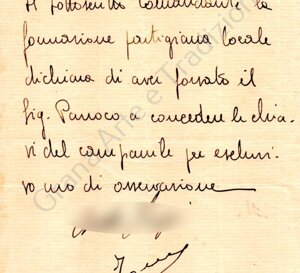 Il sottoscritto Comandante la
formazione partigiana locale
dichiara di aver forzato il
Sig. Parroco a concedere le chia-
vi del campanile per esclusi-
vo uso di osservazione
Grandi Arte e Tradizioni